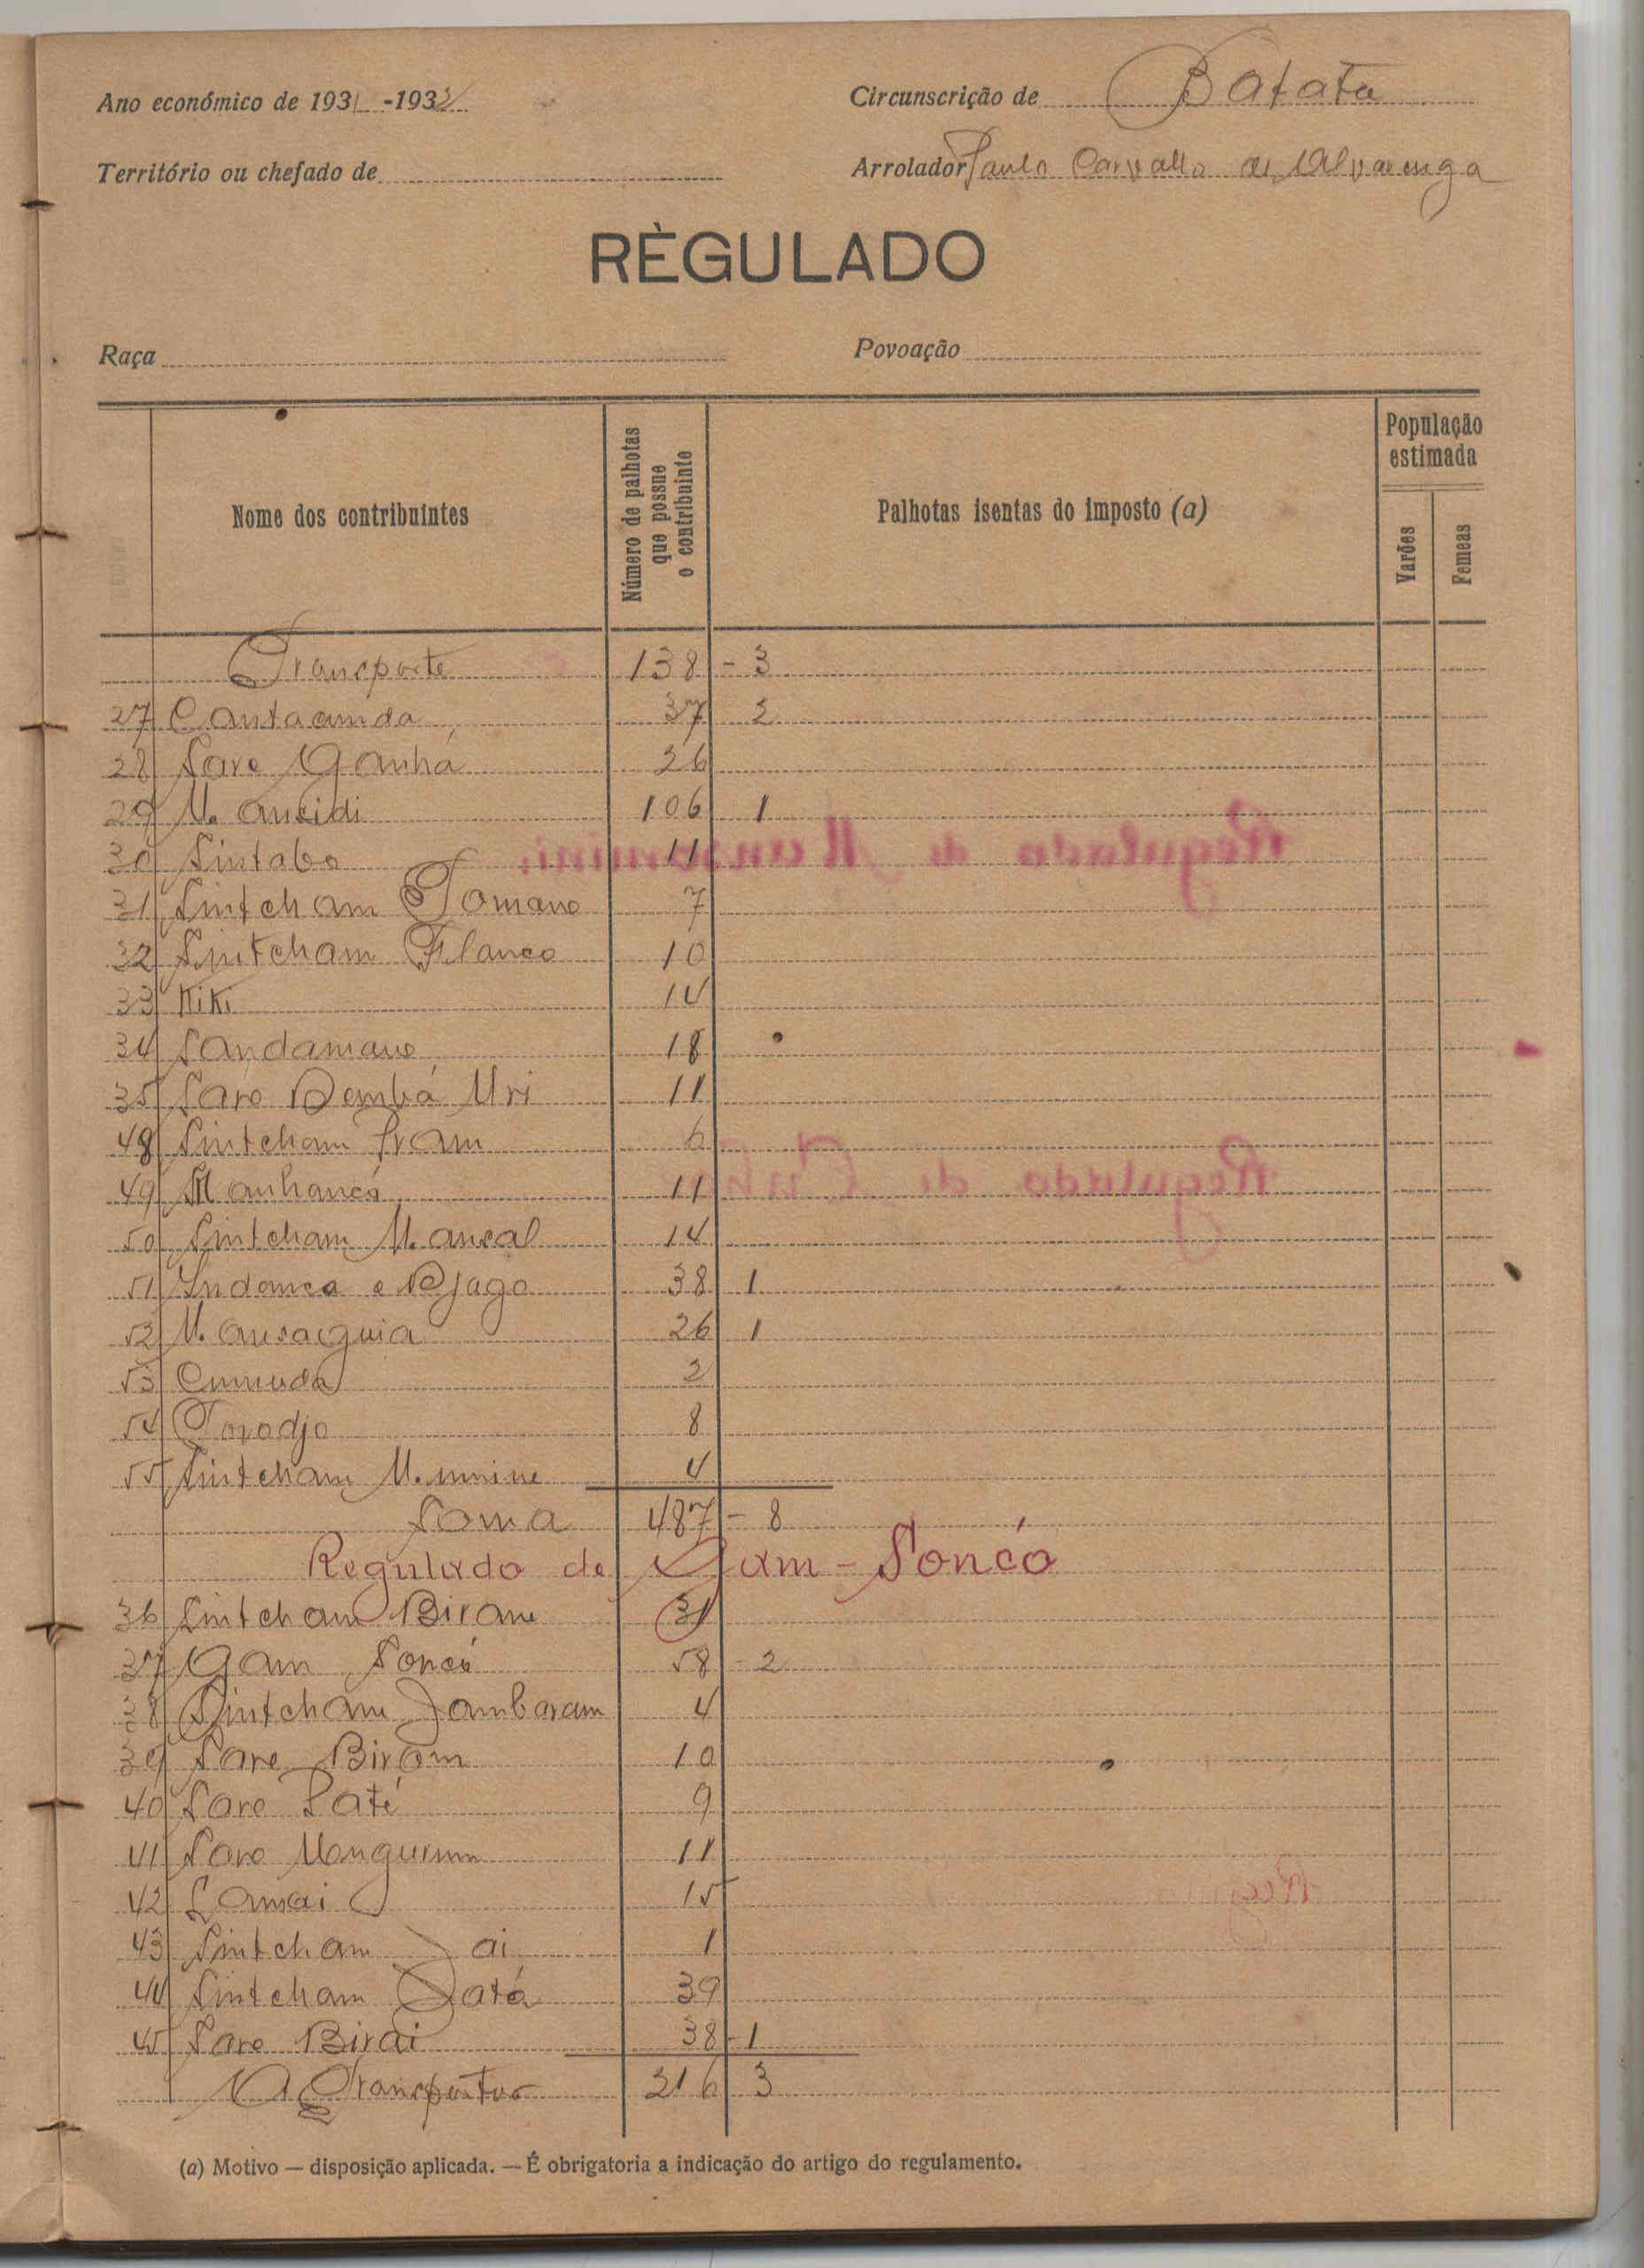 Ano económico de 1931-1932
Circunscrição de Bafata
Território ou chefado de
Arrolador Paulo Carvalho de Alvarenga
RÈGULADO
Raça
Povoação
Nome dos contribuintes
Número de palhotas que possue o contribuinte
Palhotas isentas do imposto (a)
População estimada
Varões
Femeas
Transporte 138 - 3
27 Cantacunda 37 2
28 Sare Ganhá 26
29 Mansidi 106 1
30 Sintabo 11
31 Sintcham Tomane 7
32 Sintcham Flanco 10
33 Kiki 14
34 Sandamane 18
35 Sare Dembá Uri 11
48 Sintcham Iram 6
49 Manhancá 11
50 Sintcham Mansal 14
51 Indanca e Djago 38 1
52 Mansacguia 26 1
53 Cumuda 2
54 Torodjo 8
55 Sintcham Munine 4
Soma 487 - 8
Regulado de Gam-Soncó
36 Sintcham Birane 31
37 Gam Soncó 58 - 2
38 Sintcham Jambaram 4
39 Sare Biram 10
40 Sare Paté 9
41 Sare 11
42 Lamai 15
43 Sintcham Jai 1
44 Sintcham Jatá 39
45 Sare Birai 38 - 1
A Transportar 216 3
(a) Motivo — disposição aplicada. — É obrigatoria a indicação do artigo do regulamento.